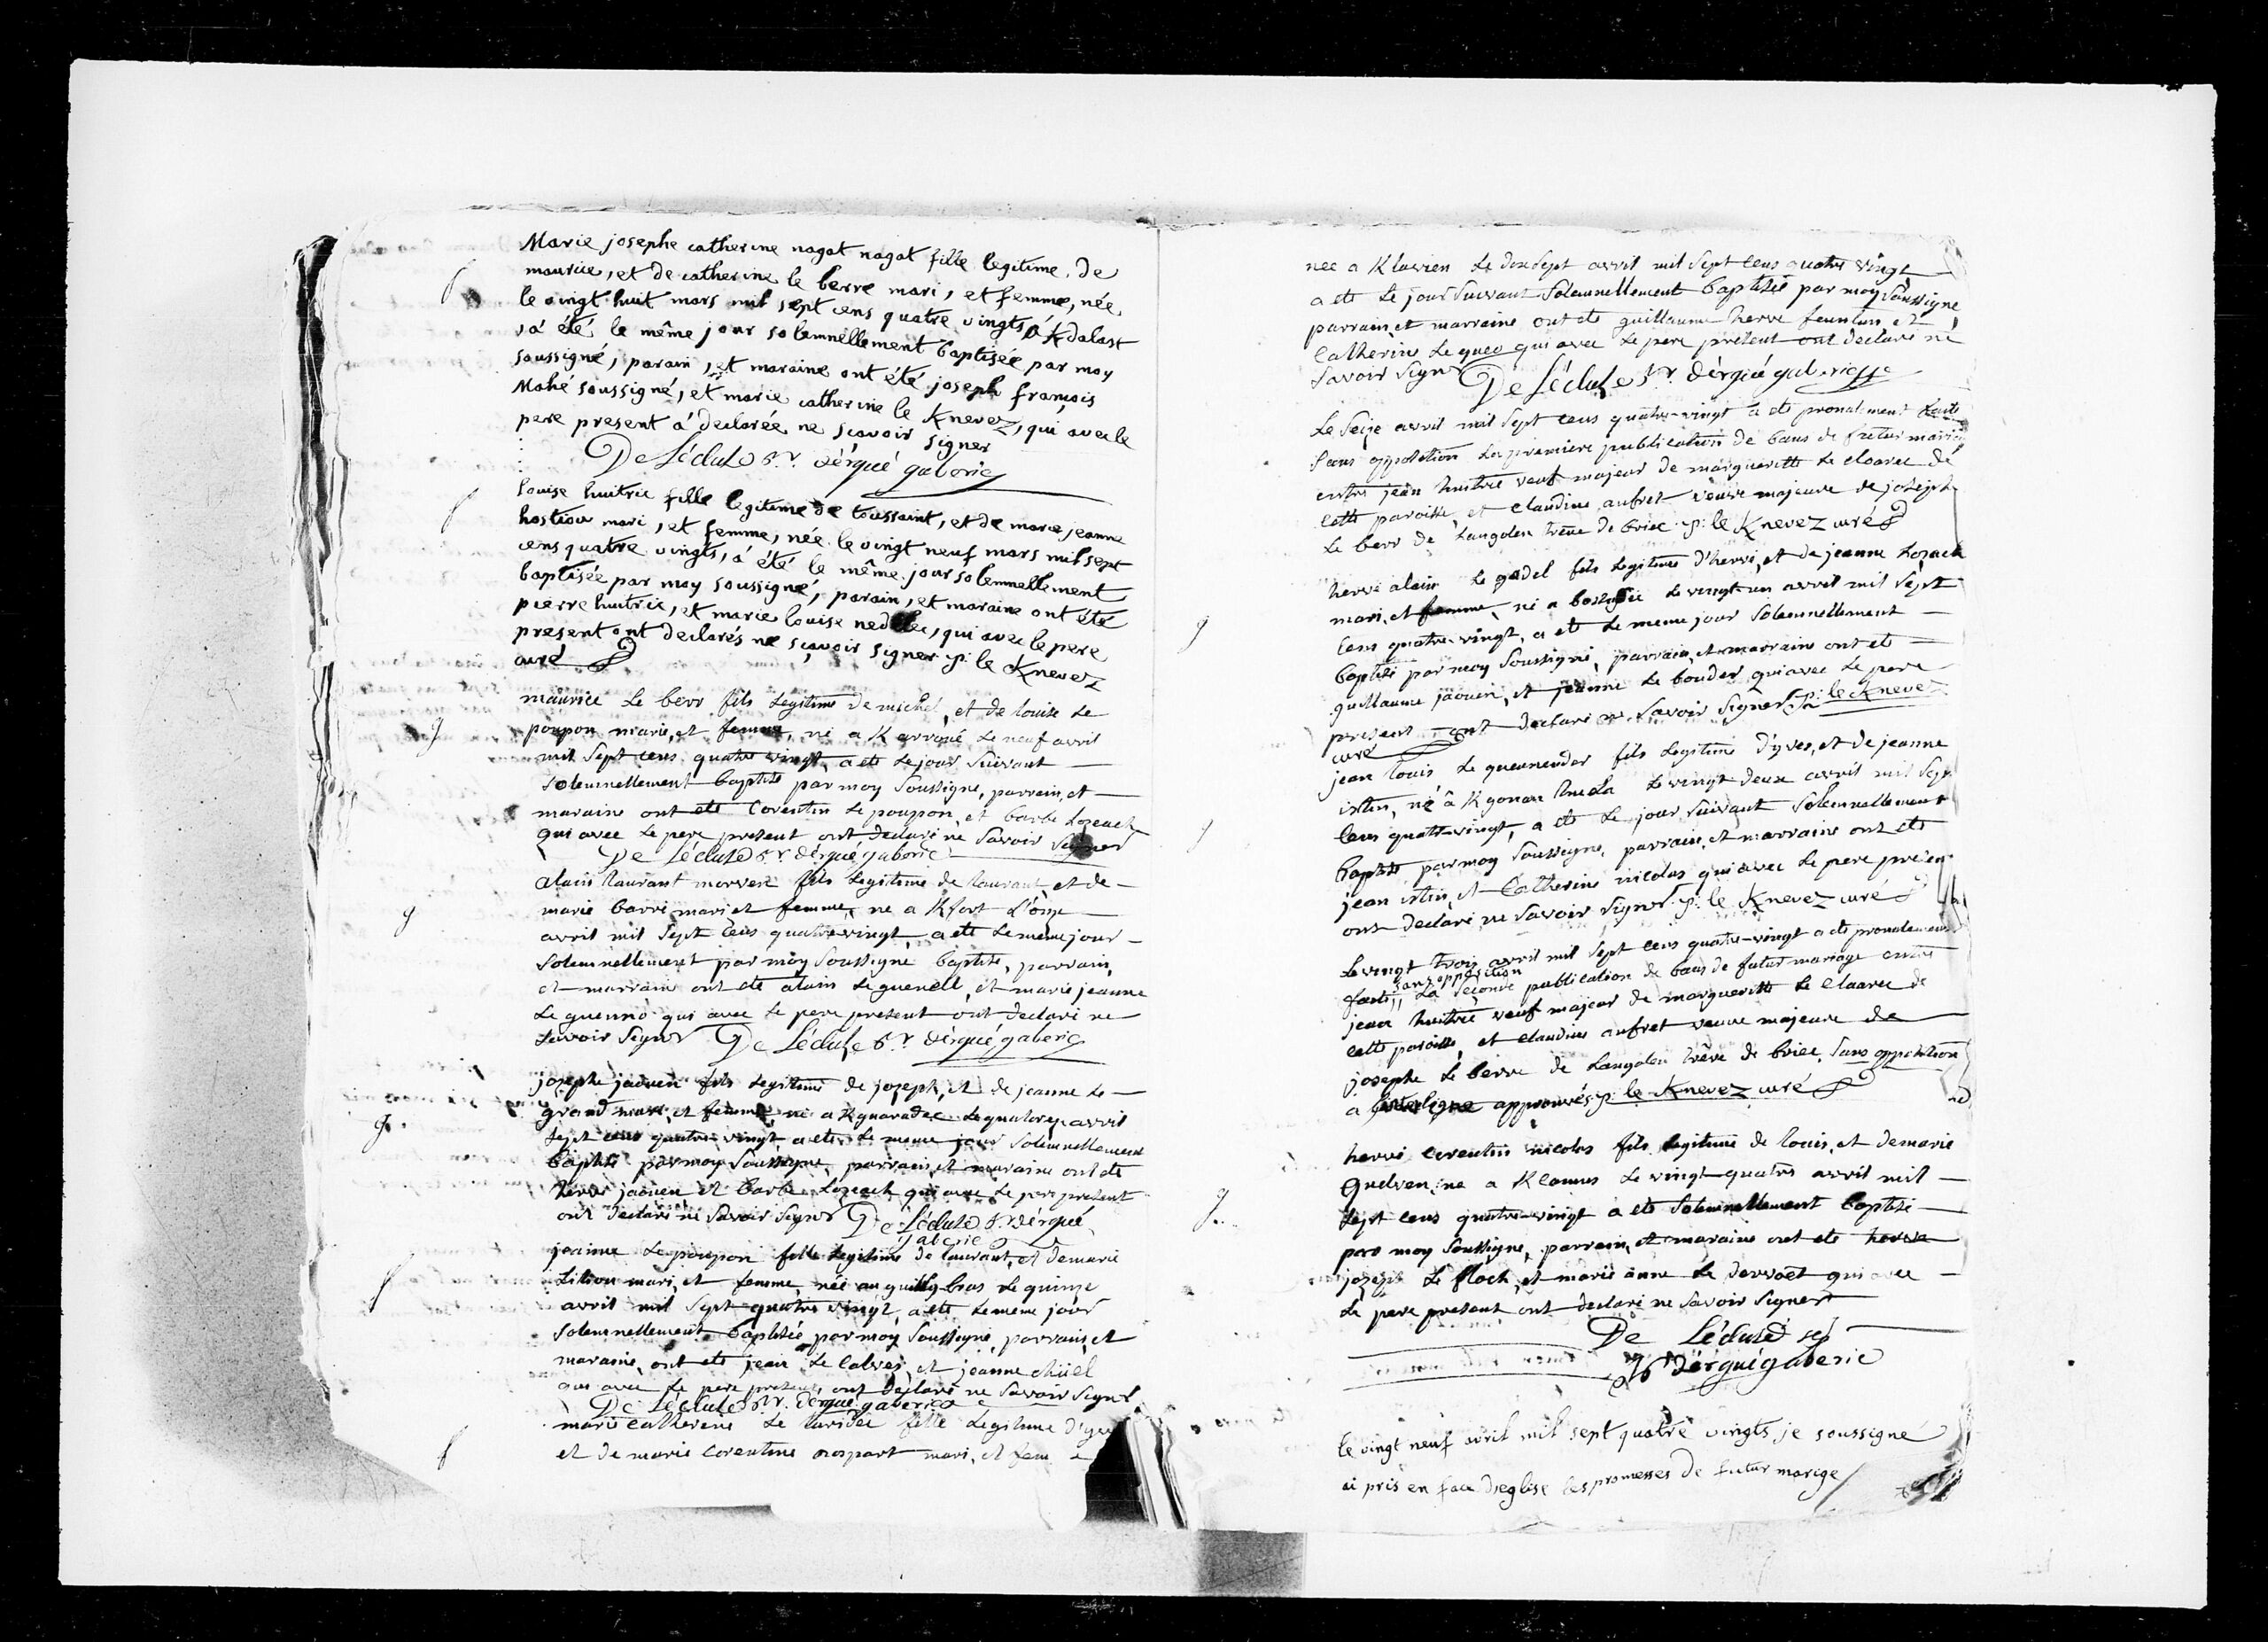 Marie josephe catherine nagat nagat fille legitime de
maurice, et de catherine le berre mari, et femme, née
le vingt huit mars mil sept cens quatre vingts, à Kdalast
, a été le même jour solemnellement baptisée par moy
soussigné, parain, et maraine ont été joseph françois
Mahé soussigné, et marie catherine le Knevez, qui avec le
pere present a declarée ne sçavoir signer
De Lécluse r. dérgué gaberic
f
louise huitric fille legitime de toussaint, et de marie jeanne
hostiou mari, et femme, née le vingt neuf mars mil sept
cens quatre vingts, a été le même jour solemnellement
baptisée par moy soussigné, parain, et maraine ont été
pierre huitric, et marie louise nedelec, qui avec le pere
present ont declarés ne sçavoir signer p: le Knevez
curé
g
maurice Le berr fils Legitime de michel, et de louise Le
poupon marié, et femme, né a Karroué Le neuf avril
mil Sept cens quatre vingt, a ete Le jour Suivant
Solemnellement baptisé par moy Soussigne, parrain, et
maraine ont ete Corentin Le poupon, et barbe Lozeach
qui avec Le pere present ont declaré ne Savoir Signer
De Lécluse r. dérgué gaberic
g
alain laurant morvere fils Legitime de laurant, et de
marie barré mari et femme, ne a Kfort L'onze
avril mil Sept Cens quatre vingt, a ete Le meme jour
Solemnellement par moy Soussigne baptisé, parrain,
et marraine ont ete alain Leguenell, et marie jeanne
Le guenno qui avec Le pere present ont declaré ne
Savoir Signer De Lécluse r. dérgué gaberic
g.
josephe jaouen fils Legitime de joseph, et de jeanne Le
grand mari, et femme, né a Kguaradec Le quatorze avril
Sept cens quatre vingt a ete Le meme jour Solemnellement
baptisé par moy Soussigne, parrain, et maraine ont ete
herve jaouen et barbe Lozeach qui avec Le pere present
ont declaré ne Savoir Signer De Lécluse r. dérgué
gaberic
f
jeanne Le poupon fille Legitime de laurant, et de marie
Litiou mari, et femme, née au guilly bras Le quinze
avril mil Sept quatre vingt, a ete Le meme jour
Solemnellement baptisée par moy Soussigné, parrain, et
maraine, ont ete jean Le Calvez, et jeanne
qui avec Le pere present, ont declaré ne Savoir Signer
De Lécluse r. dérgué gaberic
f
marie Catherine Le fille Legitime d'
et de marie Corentine rospart mari, et fem
née a Klavien Le dix Sept avril mil Sept Cens quatre vingt
a ete Le jour Suivant Solemnellement baptisée par moy Soussigne
parrain, et marraine ont ete guillaume herve feunten, et
Catherine Le queo qui avec Le pere present ont declaré ne
Savoir Signer De Lécluse r. dérgué gaberic
Le Seize avril mil Sept cens quatre-vingt a ete pronalement faite
Sans opposition La premiere publication de bans de futur mariage
entre jean huitric veuf majeur de margueritte Le cloarec de
cette paroisse, et claudine aufret veuve majeure de joseph
Le berr de Langolen treve de briec p: le Knevez curé
g
hervé alain Le gadel fils Legitime d'hervé, et de jeanne Lozach
mari, et femme, né a Le vingt-un avril mil Sept
Cens quatre-vingt, a ete Le meme jour Solemnellement
baptisé par moy Soussigné, parrain, et marraine ont ete
guillaume jaouen, et jeanne Le bouder, qui avec Le pere
present ont declaré ne Savoir Signer p: le Knevez
curé
g
jean louis Le fils Legitime d'yves, et de jeanne
istin, né à Kgonan Le vingt deux avril mil Sept
Cens quatre-vingt, a ete Le jour Suivant Solemnellement
baptisé par moy Soussigne, parrain, et marraine ont ete
jean istin, et Catherine nicolas qui avec Le pere present
ont declaré ne Savoir Signer p: le Knevez curé
Le vingt trois avril mil Sept Cens quatre-vingt a ete pronalement
sans opposition
faite La Seconde publication de bans de futur mariage entre
jean huitric veuf majeur de margueritte Le Cloarec de
cette paroisse, et claudine aufret veuve majeure de
josephe Le berre de Langolen trève de briec, Sans opposition
a approuvés p: le Knevez curé
g.
hervé Corentin nicolas fils Legitime de louis, et de marie
Quelven, ne a Klannus Le vingt-quatre avril mil
Sept Cens quatre-vingt a ete Solemnellement baptisé
par moy Soussigne, parrain, et maraine ont ete herve
jozeph Le floch, et marie anne Le dervoet qui avec
Le pere present ont declaré ne Savoir Signer
De Lécluse
dérgué gaberic
le vingt neuf avril mil sept quatre vingts je soussigné
ai pris en face d'eglise les promesses de futur marige